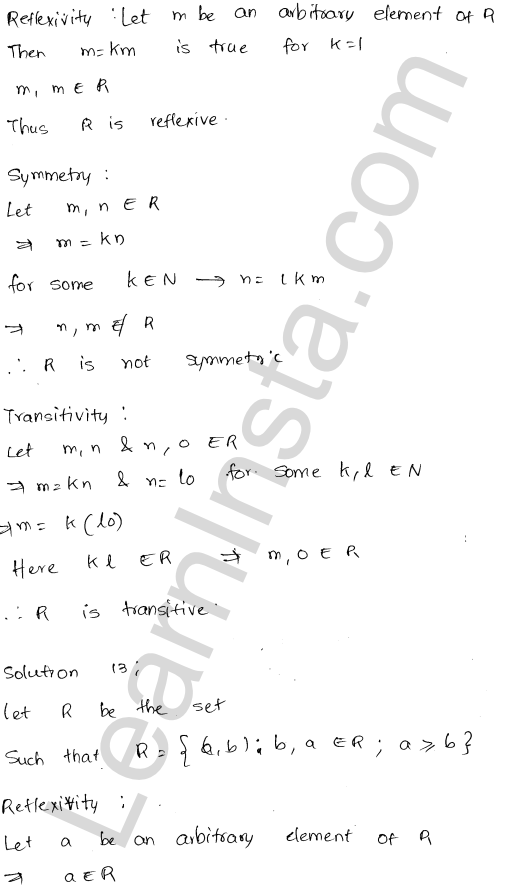 Reflexivity : Let m be an arbitrary element of R
Then m = km is true for k=1
m, m ∈ R
Thus R is reflexive.
Symmetry :
Let m, n ∈ R
⇒ m = kn
for some k ∈ N → n = 1 k m
⇒ n, m ∉ R
∴ R is not symmetric
Transitivity :
Let m, n & n, o ∈ R
⇒ m = kn & n = lo for some k, l ∈ N
⇒ m = k (lo)
Here k l ∈ R ⇒ m, o ∈ R
∴ R is transitive.
Solution 13 ;
Let R be the set
Such that R = { (a, b) ; b, a ∈ R ; a ≥ b }
Reflexivity :
Let a be an arbitrary element of R
⇒ a ∈ R
LearnInsta.com